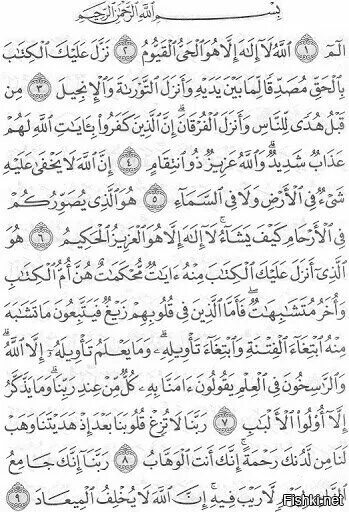 بِسْمِ اللَّهِ الرَّحْمَٰنِ الرَّحِيمِ
الٓمٓ ١ اللَّهُ لَآ إِلَٰهَ إِلَّا هُوَ الْحَىُّ الْقَيُّومُ ٢ نَزَّلَ عَلَيْكَ الْكِتَٰبَ
بِالْحَقِّ مُصَدِّقًا لِّمَا بَيْنَ يَدَيْهِ وَأَنزَلَ التَّوْرَىٰةَ وَالْإِنجِيلَ ٣ مِن
قَبْلُ هُدًى لِّلنَّاسِ وَأَنزَلَ الْفُرْقَانَ ۗ إِنَّ الَّذِينَ كَفَرُوا بِـَٔايَٰتِ اللَّهِ لَهُمْ
عَذَابٌ شَدِيدٌ ۗ وَاللَّهُ عَزِيزٌ ذُو انتِقَامٍ ٤ إِنَّ اللَّهَ لَا يَخْفَىٰ عَلَيْهِ
شَىْءٌ فِى الْأَرْضِ وَلَا فِى السَّمَآءِ ٥ هُوَ الَّذِى يُصَوِّرُكُمْ
فِى الْأَرْحَامِ كَيْفَ يَشَآءُ ۚ لَآ إِلَٰهَ إِلَّا هُوَ الْعَزِيزُ الْحَكِيمُ ٦ هُوَ
الَّذِىٓ أَنزَلَ عَلَيْكَ الْكِتَٰبَ مِنْهُ ءَايَٰتٌ مُّحْكَمَٰتٌ هُنَّ أُمُّ الْكِتَٰبِ
وَأُخَرُ مُتَشَٰبِهَٰتٌ ۖ فَأَمَّا الَّذِينَ فِى قُلُوبِهِمْ زَيْغٌ فَيَتَّبِعُونَ مَا تَشَٰبَهَ
مِنْهُ ابْتِغَآءَ الْفِتْنَةِ وَابْتِغَآءَ تَأْوِيلِهِۦ ۗ وَمَا يَعْلَمُ تَأْوِيلَهُۥٓ إِلَّا اللَّهُ ۗ
وَالرَّٰسِخُونَ فِى الْعِلْمِ يَقُولُونَ ءَامَنَّا بِهِۦ كُلٌّ مِّنْ عِندِ رَبِّنَا ۗ وَمَا يَذَّكَّرُ
إِلَّآ أُولُوا الْأَلْبَٰبِ ٧ رَبَّنَا لَا تُزِغْ قُلُوبَنَا بَعْدَ إِذْ هَدَيْتَنَا وَهَبْ
لَنَا مِن لَّدُنكَ رَحْمَةً ۚ إِنَّكَ أَنتَ الْوَهَّابُ ٨ رَبَّنَآ إِنَّكَ جَامِعُ
لَّا رَيْبَ فِيهِ ۚ إِنَّ اللَّهَ لَا يُخْلِفُ الْمِيعَادَ ٩
Fishki.net